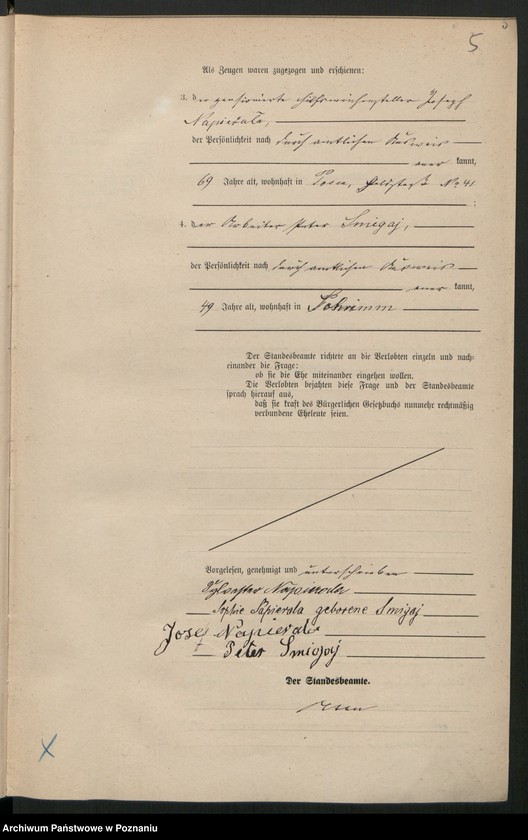 5
Als Zeugen waren zugezogen und erschienen:
3. der pensionierte Hilfsweichensteller Joseph
Napierala,
der Persönlichkeit nach durch amtlichen Ausweis
aner kannt,
69 Jahre alt, wohnhaft in Posen, Feldstraße No 41
;
4. der Arbeiter Peter Smigaj,
der Persönlichkeit nach durch amtlichen Ausweis
aner kannt,
49 Jahre alt, wohnhaft in
Der Standesbeamte richtete an die Verlobten einzeln und nach-
einander die Frage:
ob sie die Ehe miteinander eingehen wollen.
Die Verlobten bejahten diese Frage und der Standesbeamte
sprach hierauf aus,
daß sie kraft des Bürgerlichen Gesetzbuchs nunmehr rechtmäßig
verbundene Eheleute seien.
Vorgelesen, genehmigt und unterschrieben
Sylvester Napierala
Sophie Napierala geborene Smigaj
Josef Napierala
Peter Smigaj
Der Standesbeamte.
Archiwum Państwowe w Poznaniu